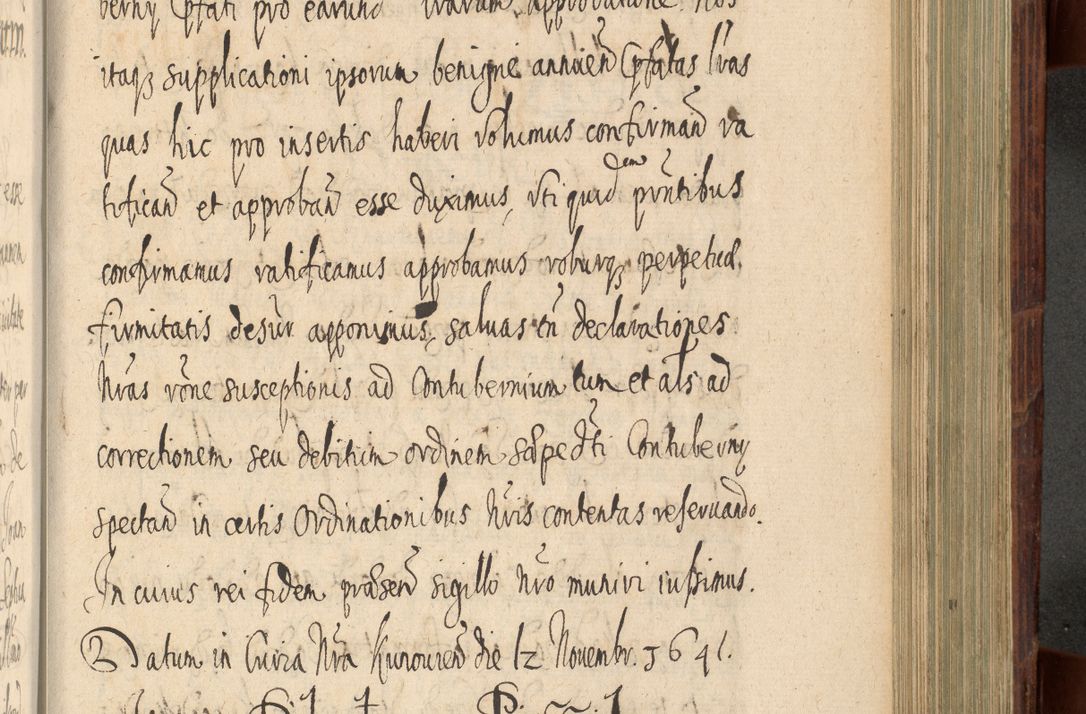 itaq3 supplicationi ipsorum benigne annuen Cpfatas lras
quas hic pro insertis haberi volumus confirman ra
tifican et approban esse duximus, vti quid dem pnntibus
confirmamus ratificamus approbamus roburq3 perpetuæ
firmitatis desur apponimus, saluas tn declarationes
Nras rone susceptionis ad Contubernium tum et als ad
correctionem seu debitum ordinem sæpe dti Contuberny
spectan in certis Ordinationibus Nris contentas reseruando.
In cuius rei fidem præsen sigillo Nro muniri iussimus.
Datum in Curia Nra Kunouien die 12 Nouembr. 1641.